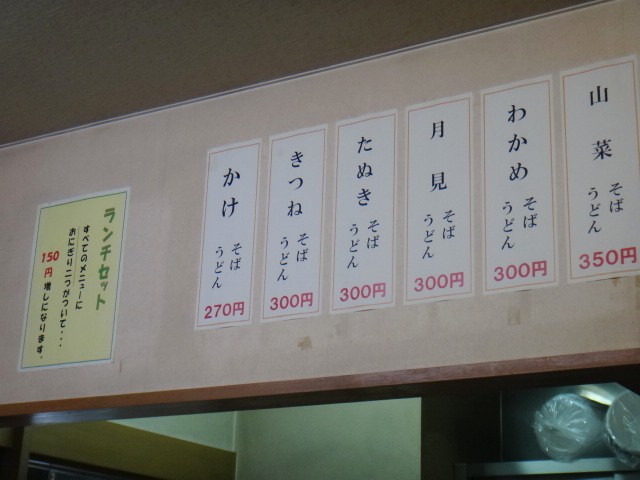 山菜
そば
うどん
350円
わかめ
そば
うどん
300円
月見
そば
うどん
300円
たぬき
そば
うどん
300円
きつね
そば
うどん
300円
かけ
そば
うどん
270円
ランチセット
すべてのメニューに
おにぎり二つがついて・・・
150円増しになります。